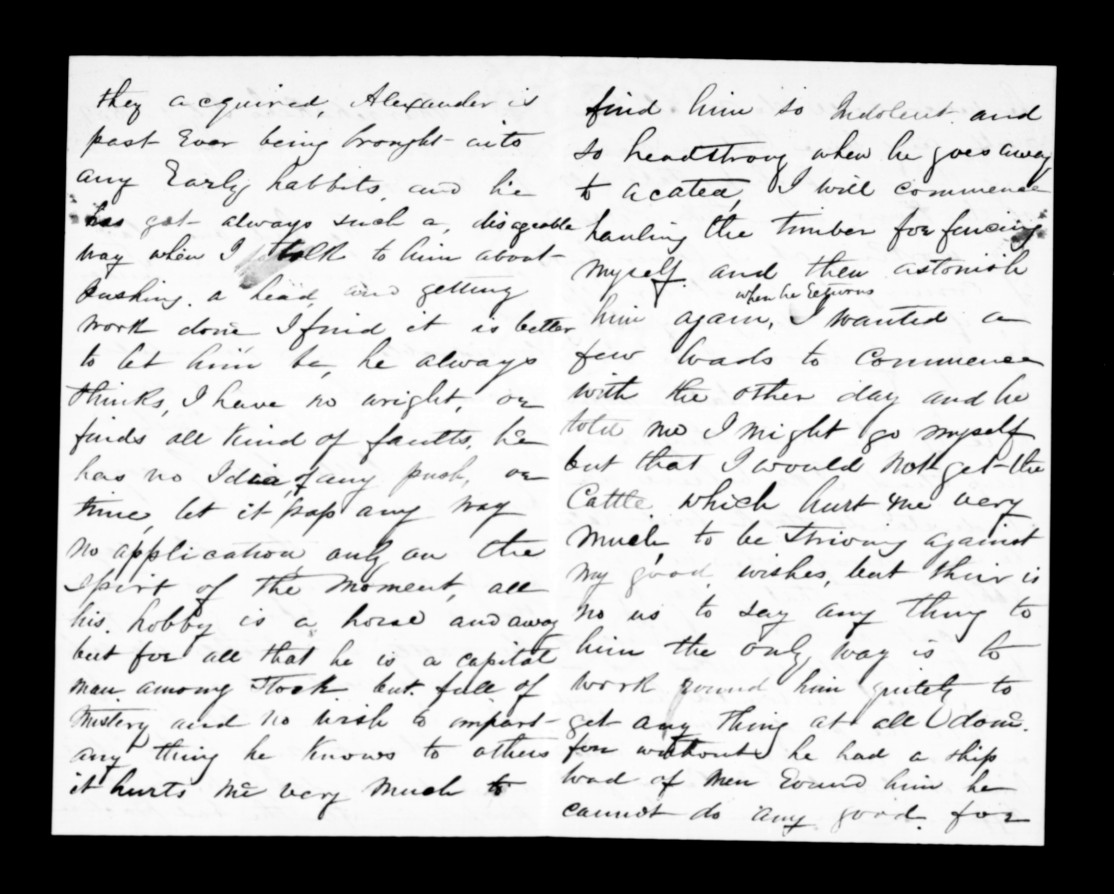 they acquired, Alexander is
past Ever being brought into
any Early habbits, and he
has got always such a, disageable
way when I talk to him about
Pushing. a head, and getting
work done I find it is better
to let him be, he always
thinks, I have no wright, or
finds all kind of faults, he
has no Idia, of any push, or
time, let it pap any way
no application, only on the
Spirt of the moment, all
his hobby is a horse and away
but for all that he is a capital
man among Stock but full of
mistery and no wish to impart
any thing he knows to others
it hurts me very much to
find him so Indolent and
so headstrong when he goes away
to I will commence
hauling the timber for fencing
myself. and then astonish
when he Returns
him again, I wanted a
few loads to commence
with the other day and he
told me I might go myself
but that I would not get the
Cattle which hurt me very
much, to be striving against
my good wishes, but their is
no us to say any thing to
him the only way is to
work round him quitely to
get any thing at all done.
for without he had a ship
load of men Round him he
cannot do any good. for